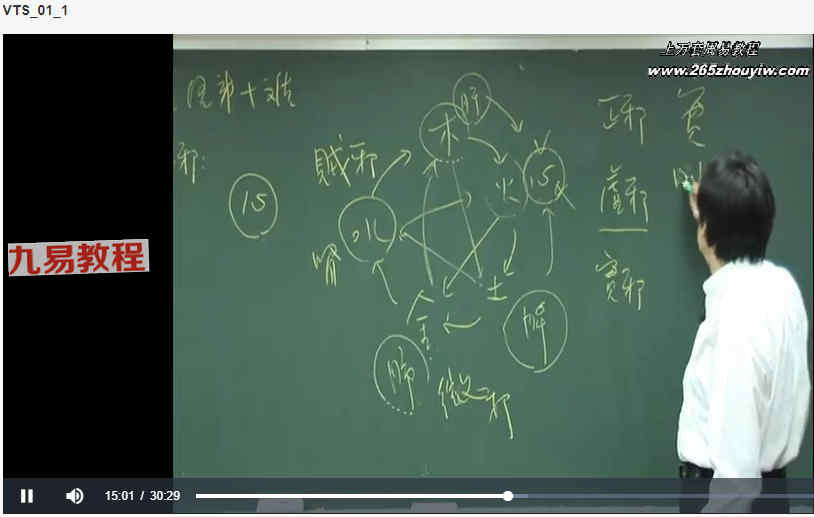 VTS_01_1
上万套周易教程
www.265zhouyiw.com
九易教程
第十難
邪:
心
賊邪
肝
木
火
心
水
腎
土
金
脾
肺
微邪
正邪
虛邪
實邪
15:01 / 30:29